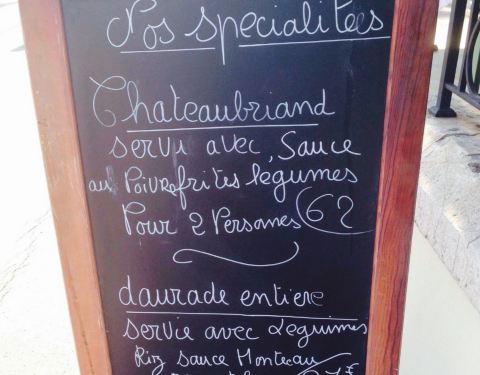 Nos spécialitées
Chateaubriand
servu avec, Sauce
au Poivre frites légumes
Pour 2 Personnes 62
daurade entiere
servie avec Léguimes
Riz sauce